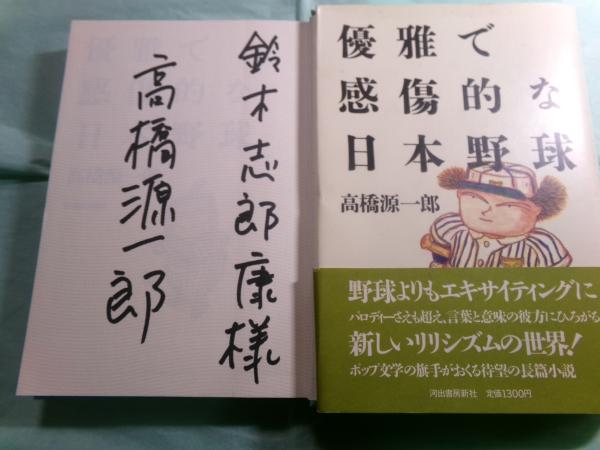 鈴木志郎康様
高橋源一郎
優雅で
感傷的な
日本野球
高橋源一郎
野球よりもエキサイティングに
パロディーさえも超え、言葉と意味の彼方にひろがる
新しいリリシズムの世界!
ポップ文学の旗手がおくる待望の長篇小説
河出書房新社 定価1300円